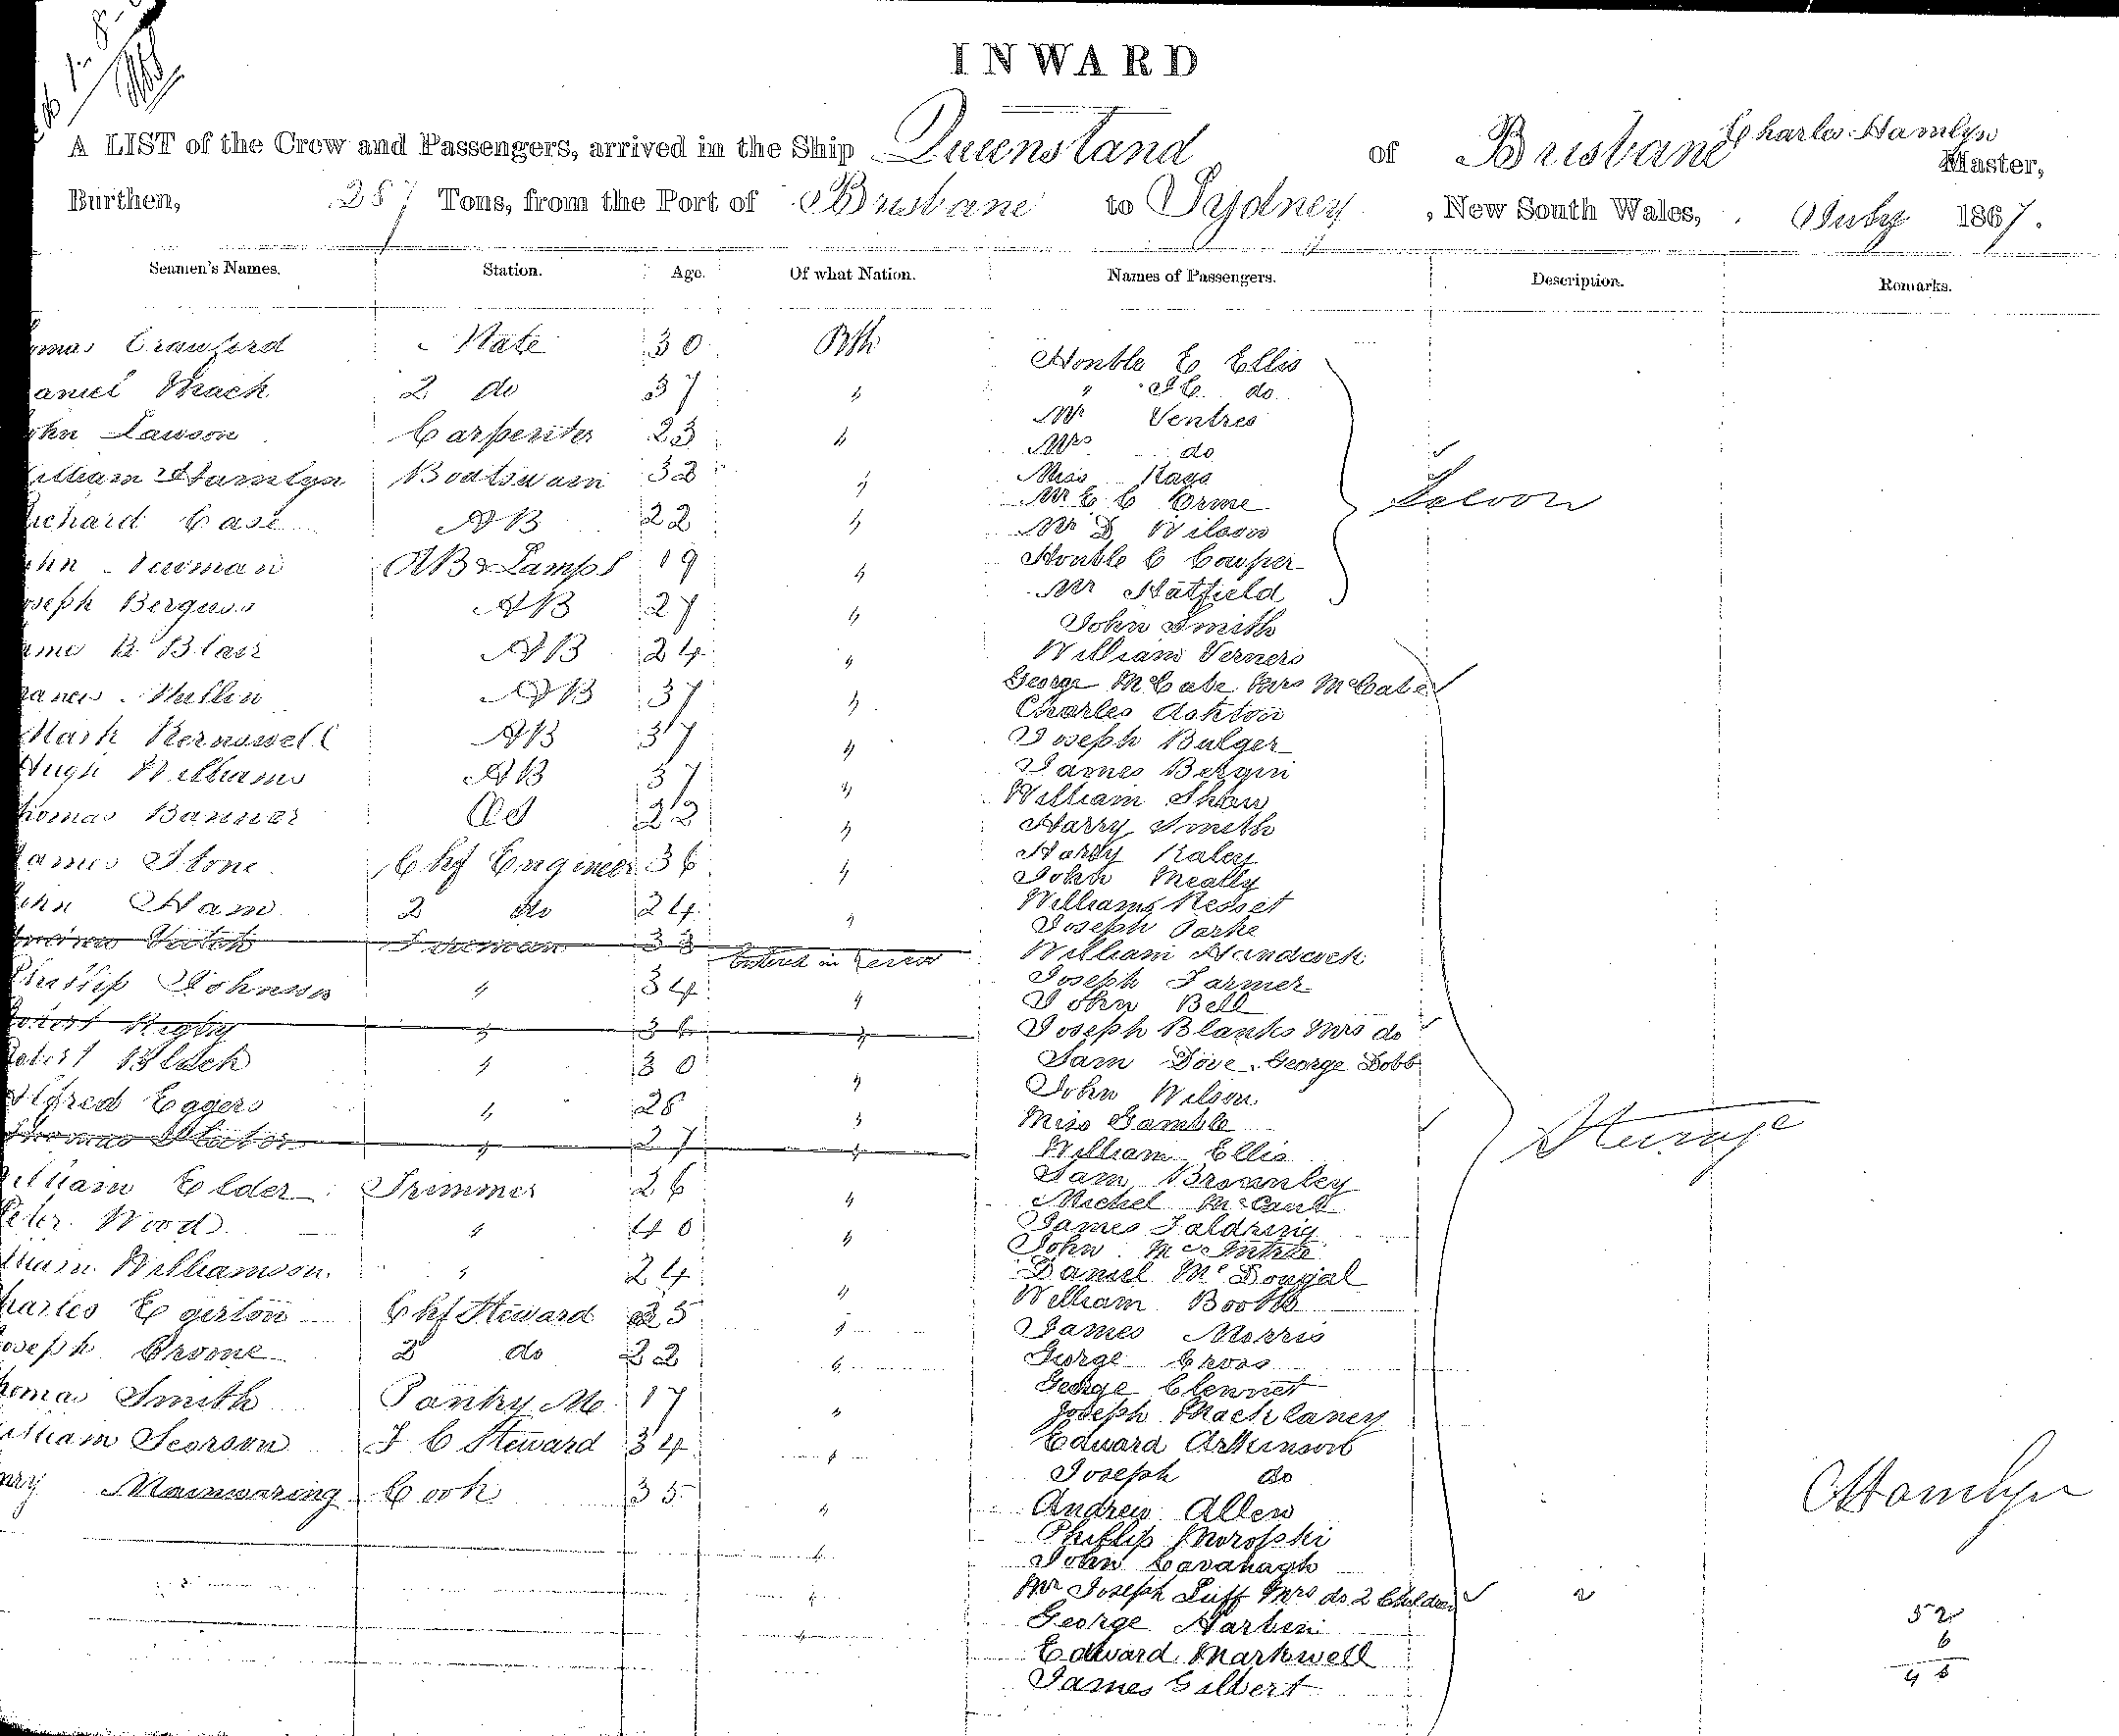 INWARD
A LIST of the Crew and Passengers, arrived in the Ship Queensland of Brisbane Charles Hamlyn Master,
Burthen, 287 Tons, from the Port of Brisbane to Sydney, New South Wales, July 1867.
Seamen's Names. Station. Age. Of what Nation. Names of Passengers. Description. Remarks.
omas Crawford Mate 30 Bth Honble E Ellis
aniel Mack 2 do 37 " " do
ohn Lawson Carpenter 23 " Mr Ventres
Mrs do
illiam Hamlyn Boatswain 32 " Miss
Mr C C Orme Saloon
ichard Case AB 22 " Mr D Wilson
ohn Newman AB & Lamps 19 " Honble C Cowper
oseph AB 27 " Mr Hatfield
John Smith
R Blair AB 24 " William Verners
rancis Mullin AB 37 " George McCabe Mrs McCabe
Charles Ashton
Mark AB 37 " Joseph Bulger
Hugh Williams AB 37 " James Bergin
William Shaw
homas Banner OS 22 " Harry Smith
Harry Raley
James Stone Chf Engineer 36 " John Meally
ohn Ham 2 do 24 " William
Joseph Parke
Fireman 33 Entered in error William Handcock
Phillip Johnson " 34 " Joseph Farmer
John Bell
Robert Rigby " 36 " Joseph Blanks Mrs do
Robert Black " 30 " Sam Dove. George Dobb
Alfred Eggers " 28 " John Wilson
Miss Gamble Steerage
Thomas Slator " 27 " William Ellis
illiam Elder Trimmer 26 " Sam Bromley
Michel
Peter Wood " 40 " James Faldring
John McIntire
illiam Williamson " 24 Daniel McDougal
harles Egerton Chf Steward 25 " William Booth
James Morris
oseph Crome 2 do 22 " George Cross
George Clennet
homas Smith Pantry M. 17 " Joseph Mack laney
illiam Scorson F C Steward 34 " Edward Atkinson
Joseph do
Mainwaring Cook 35 " Andrew Allen
CHamlyn
Phillip Morofski
" John Cavanagh
" Mr Joseph Luff Mrs do 2 Children 2
George Harben 52
" Edward Markwell 6
James Gilbert 46